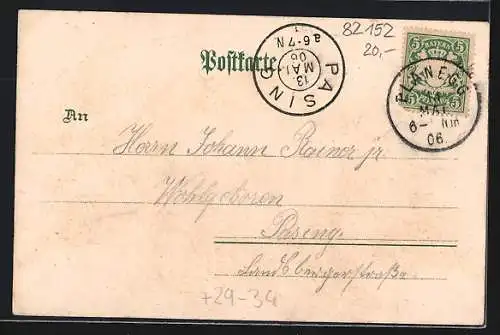 82152
20,-
Postkarte.
PASING
13
MAI
06
a 6-7N
5 BAYERN 5
5 5
PLANEGG
MAI
6- NM
06
An
Herrn Johann Rainer jr.
Wohlgeboren
Pasing
Landsbergerstraße
+29-34